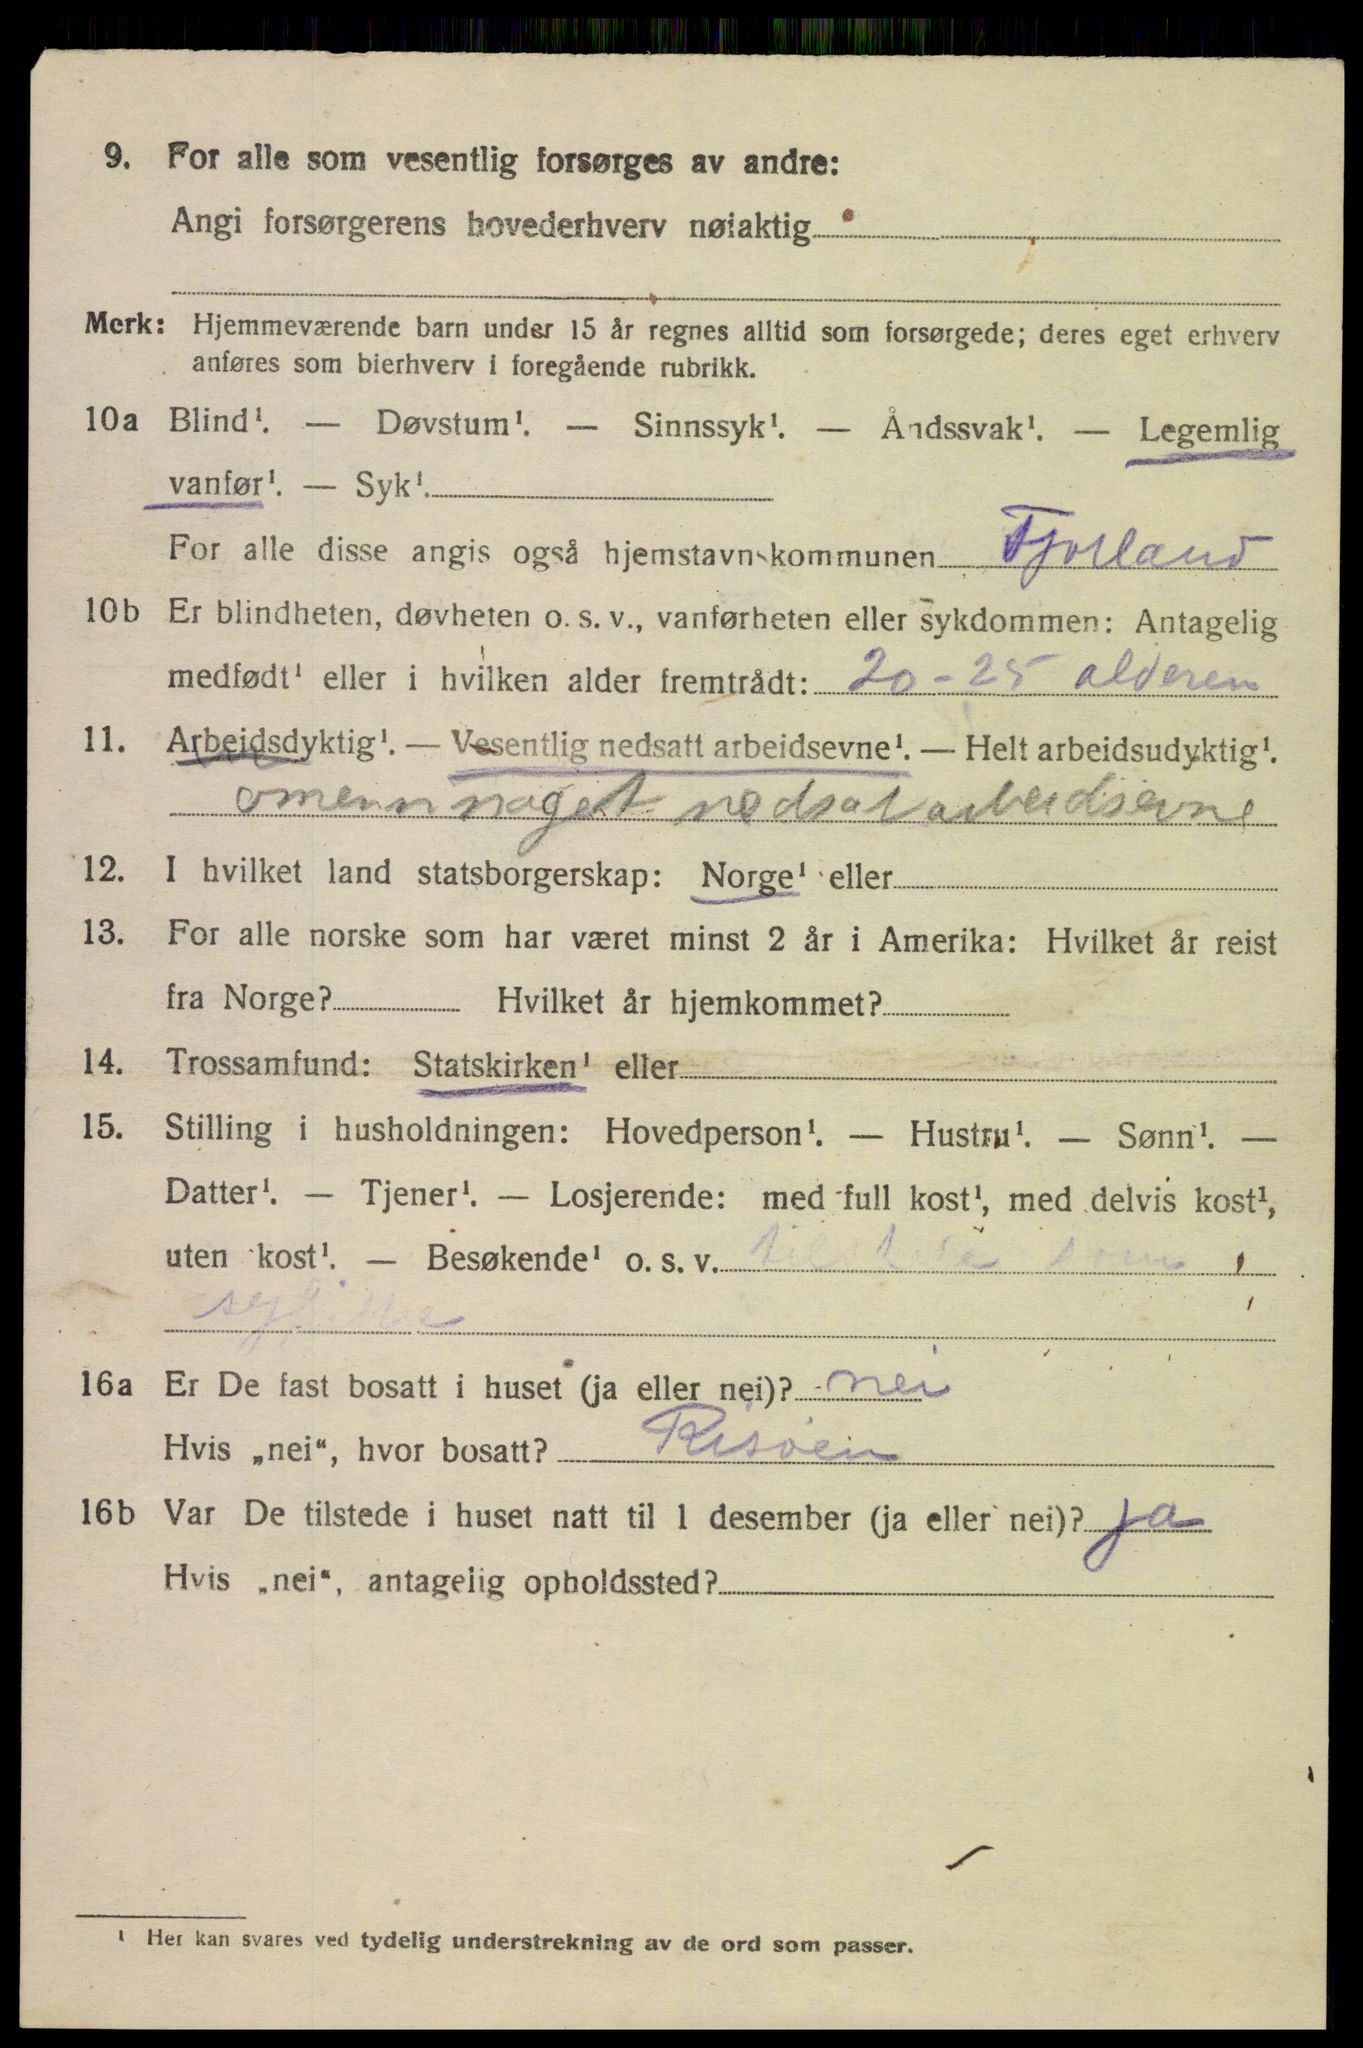 9. For alle som vesentlig forsørges av andre:
Angi forsørgerens hovederhverv nøiaktig
Merk: Hjemmeværende barn under 15 år regnes alltid som forsørgede; deres eget erhverv
anføres som bierhverv i foregående rubrikk.
10a Blind¹. — Døvstum¹. — Sinnssyk¹. — Åndssvak¹. — Legemlig
vanfør¹. — Syk¹.
For alle disse angis også hjemstavnskommunen Fjotland
10b Er blindheten, døvheten o. s. v., vanførheten eller sykdommen: Antagelig
medfødt¹ eller i hvilken alder fremtrådt: 20-25 alderen
11. Arbeidsdyktig¹. — Vesentlig nedsatt arbeidsevne¹. — Helt arbeidsudyktig¹.
omenn noget nedsat arbeidsevne
12. I hvilket land statsborgerskap: Norge¹ eller
13. For alle norske som har været minst 2 år i Amerika: Hvilket år reist
fra Norge? Hvilket år hjemkommet?
14. Trossamfund: Statskirken¹ eller
15. Stilling i husholdningen: Hovedperson¹. — Hustru¹. — Sønn¹. —
Datter¹. — Tjener¹. — Losjerende: med full kost¹, med delvis kost¹,
uten kost¹. — Besøkende¹ o. s. v. tilstede som
16a Er De fast bosatt i huset (ja eller nei)? nei
Hvis „nei“, hvor bosatt? Risøen
16b Var De tilstede i huset natt til 1 desember (ja eller nei)? ja
Hvis „nei“, antagelig opholdssted?
¹ Her kan svares ved tydelig understrekning av de ord som passer.